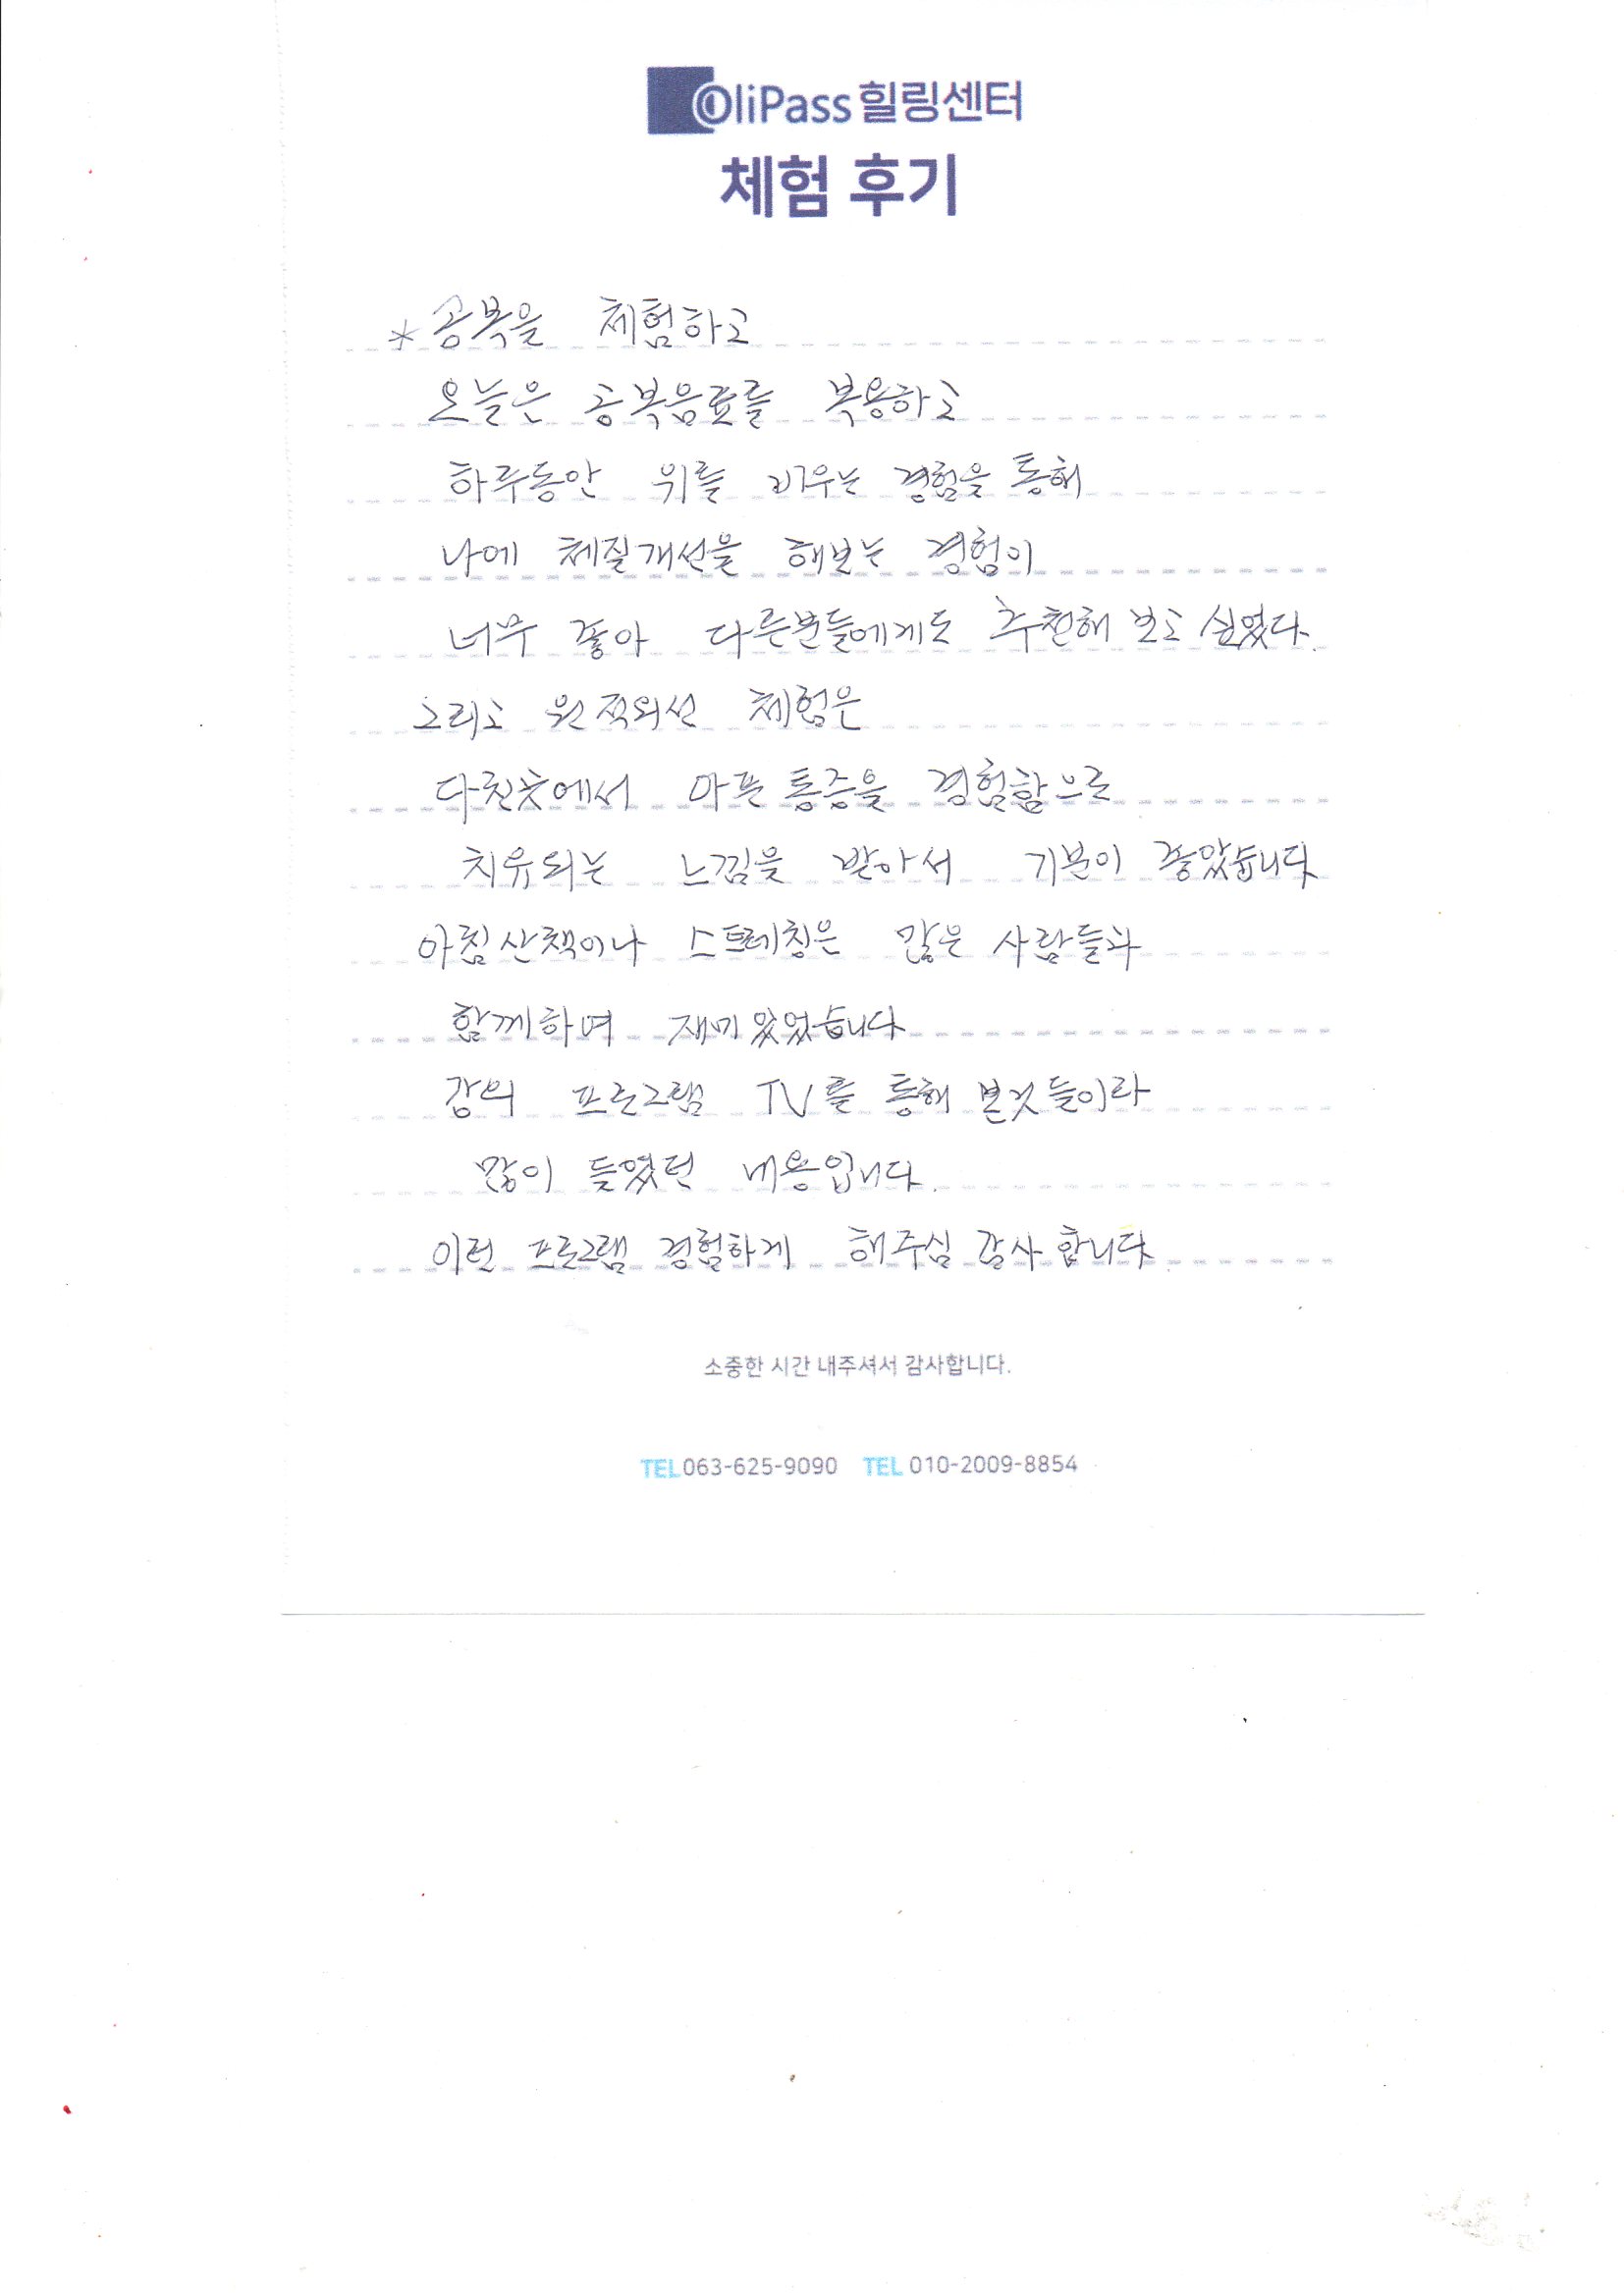 OliPass 힐링센터
체험 후기
* 공복을 체험하고
오늘은 공복음료를 복용하고
하루동안 위를 비우는 경험을 통해
나에 체질개선을 해보는 경험이
너무 좋아 다른분들에게도 추천해 보고 싶었다.
그리고 원적외선 체험은
다친곳에서 아픈 통증을 경험함으로
치유되는 느낌을 받아서 기분이 좋았습니다
아침산책이나 스트레칭은 많은 사람들과
함께하여 재미있었습니다
강의 프로그램 TV를 통해 본것들이라
많이 듯였던 내용입니다.
이런 프로그램 경험하게 해주심 감사합니다
소중한 시간 내주셔서 감사합니다.
TEL 063-625-9090 TEL 010-2009-8854